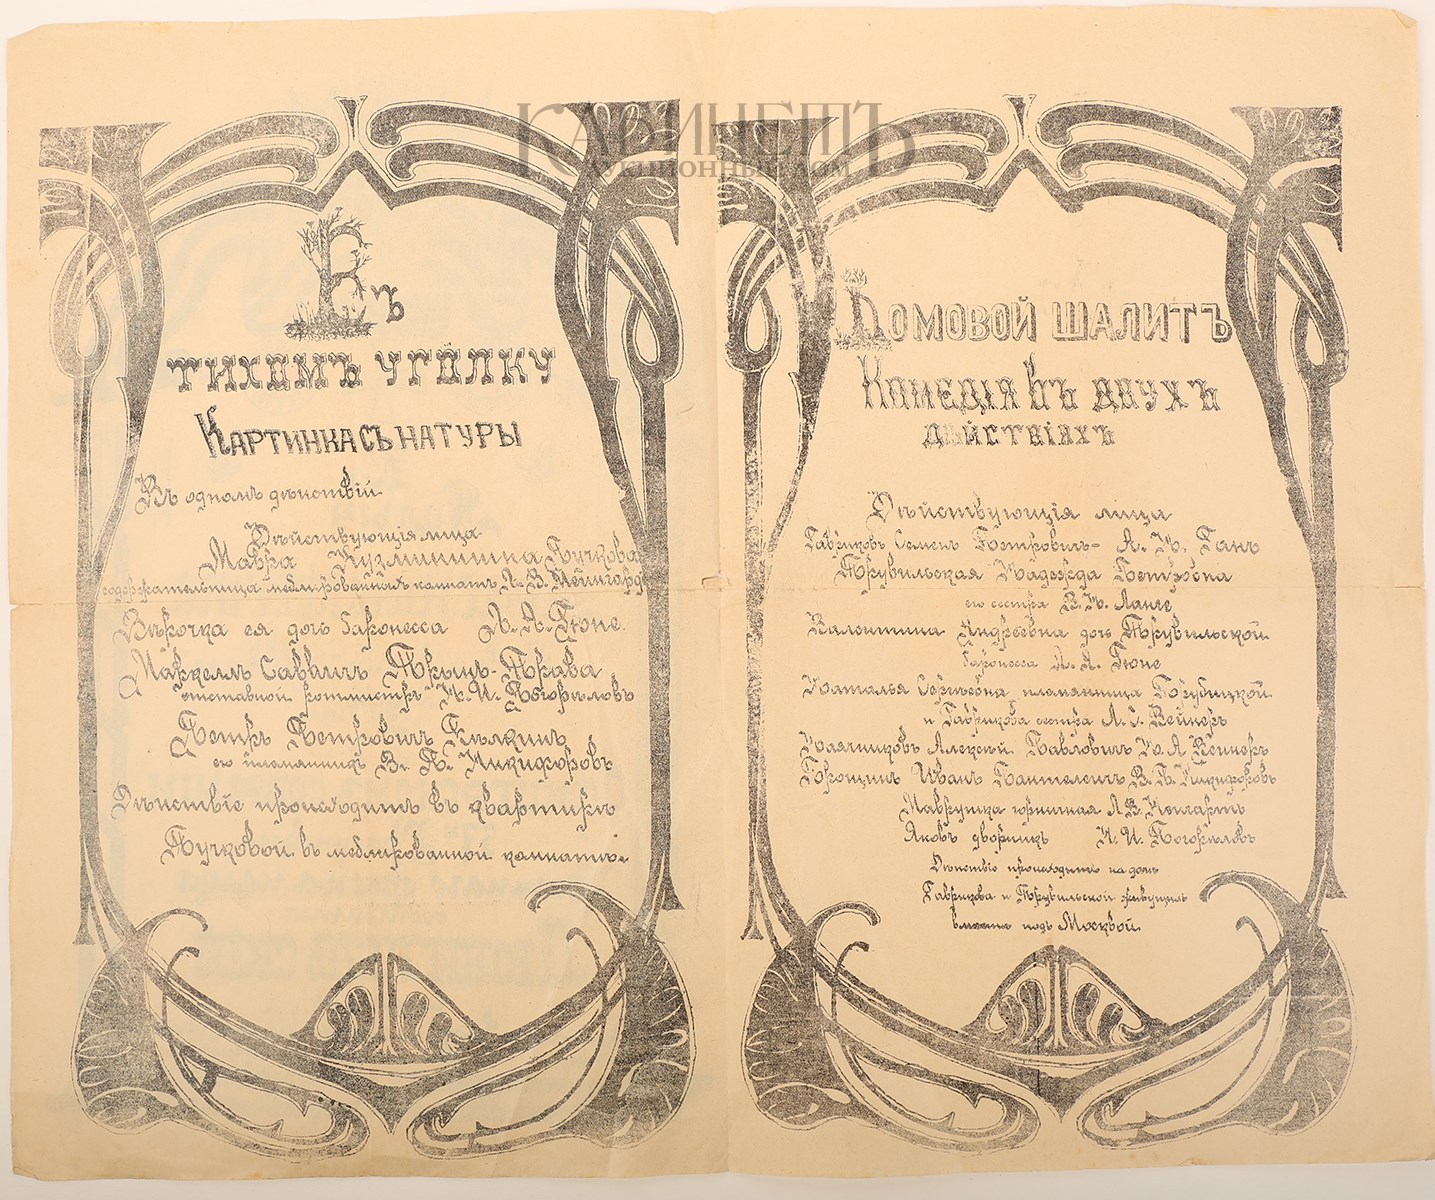 КАБИНЕТЪ
АУКЦИОННЫЙ ДОМ
Въ
тихомъ уголку
Картинка съ натуры
Въ одномъ дѣйствій
Дѣйствующія лица
Мавра Кузминишна Пучкова
содержательница меблированныхъ комнатъ Л. В. Мейнгардъ
Вѣрочка ея дочь баронесса А. А. Гюне.
Маркелъ Саввичъ Прыць-Трава
отставной ротмистръ И. Погориловъ
Петръ Петровичъ Килкинъ
его племянникъ В. В. Никифоровъ
Дѣйствіе происходитъ въ квартирѣ
Пучковой. въ меблированной комнатѣ.
Домовой шалитъ
Комедія въ двухъ
дѣйствіяхъ
Дѣйствующія лица
Гавриковъ Семенъ Петровичъ - А. Ганъ
Трувильская Надежда Петровна
его сестра В. Ланге
Валентина Андреевна дочь Трувильской
баронесса А. А. Гюне
Наталья Сергѣевна племянница
и Гаврикова сестра Л. Вейнеръ
Алексѣй Павловичъ А. Вейнеръ
Иванъ Пантелеичъ В. В. Никифоровъ
Маврушка горничная Л. В.
Яковъ дворникъ И. Погориловъ
Дѣйствіе происходитъ на дачѣ
Гаврикова и Трувильской живущихъ
вмѣстѣ подъ Москвой.